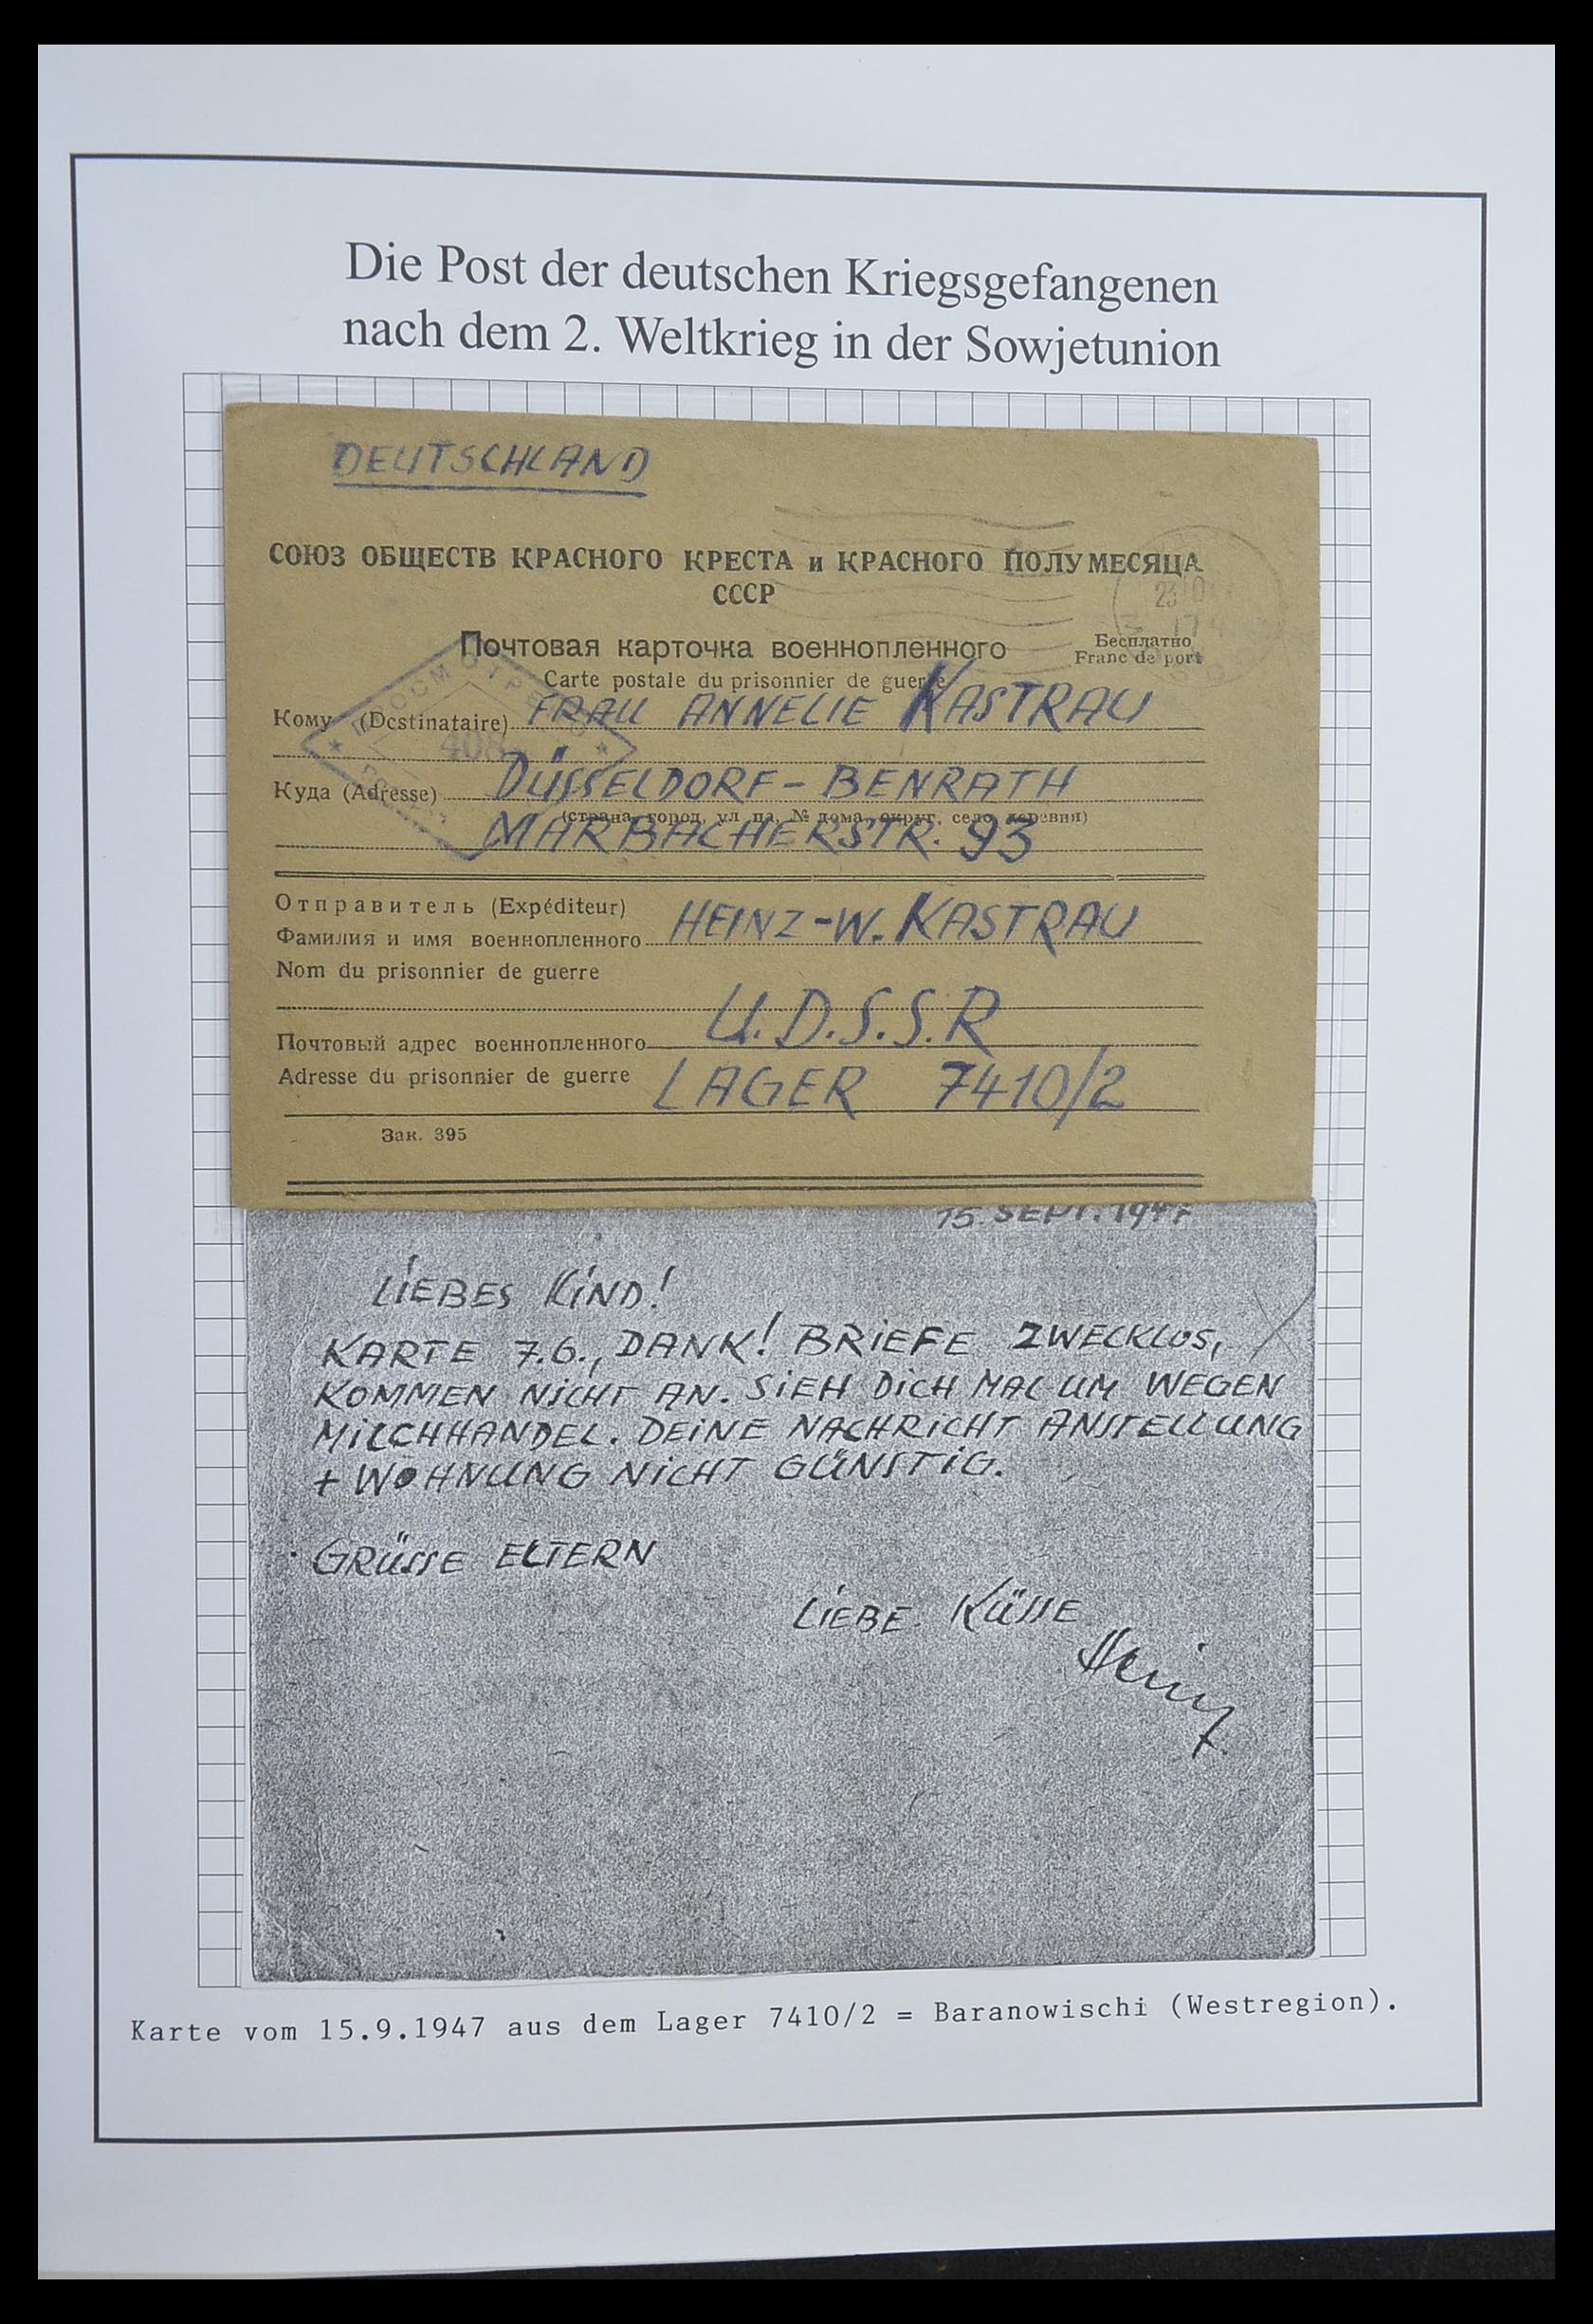 Die Post der deutschen Kriegsgefangenen
nach dem 2. Weltkrieg in der Sowjetunion
DEUTSCHLAND
СОЮЗ ОБЩЕСТВ КРАСНОГО КРЕСТА и КРАСНОГО ПОЛУМЕСЯЦА
СССР
Почтовая карточка военнопленного
Бесплатно
Franc de port
Carte postale du prisonnier de guerre
Кому (Destinataire) FRAU ANNELIE KASTRAU
408
Куда (Adresse) DÜSSELDORF - BENRATH
(страна, город, ул ца, № дома, округ, село, деревня)
MARBACHERSTR. 93
Отправитель (Expéditeur)
Фамилия и имя военнопленного HEINZ-W. KASTRAU
Nom du prisonnier de guerre
U.D.S.S.R
Почтовый адрес военнопленного
Adresse du prisonnier de guerre LAGER 7410/2
Зак. 395
15. SEPT. 1947
LIEBES KIND!
KARTE 7.6., DANK! BRIEFE ZWECKLOS,
KOMMEN NICHT AN. SIEH DICH MAL UM WEGEN
MILCHHANDEL. DEINE NACHRICHT ANSTELLUNG
+ WOHNUNG NICHT GÜNSTIG.
GRÜSSE ELTERN
LIEBE KÜSSE
Heinz
Karte vom 15.9.1947 aus dem Lager 7410/2 = Baranowischi (Westregion).